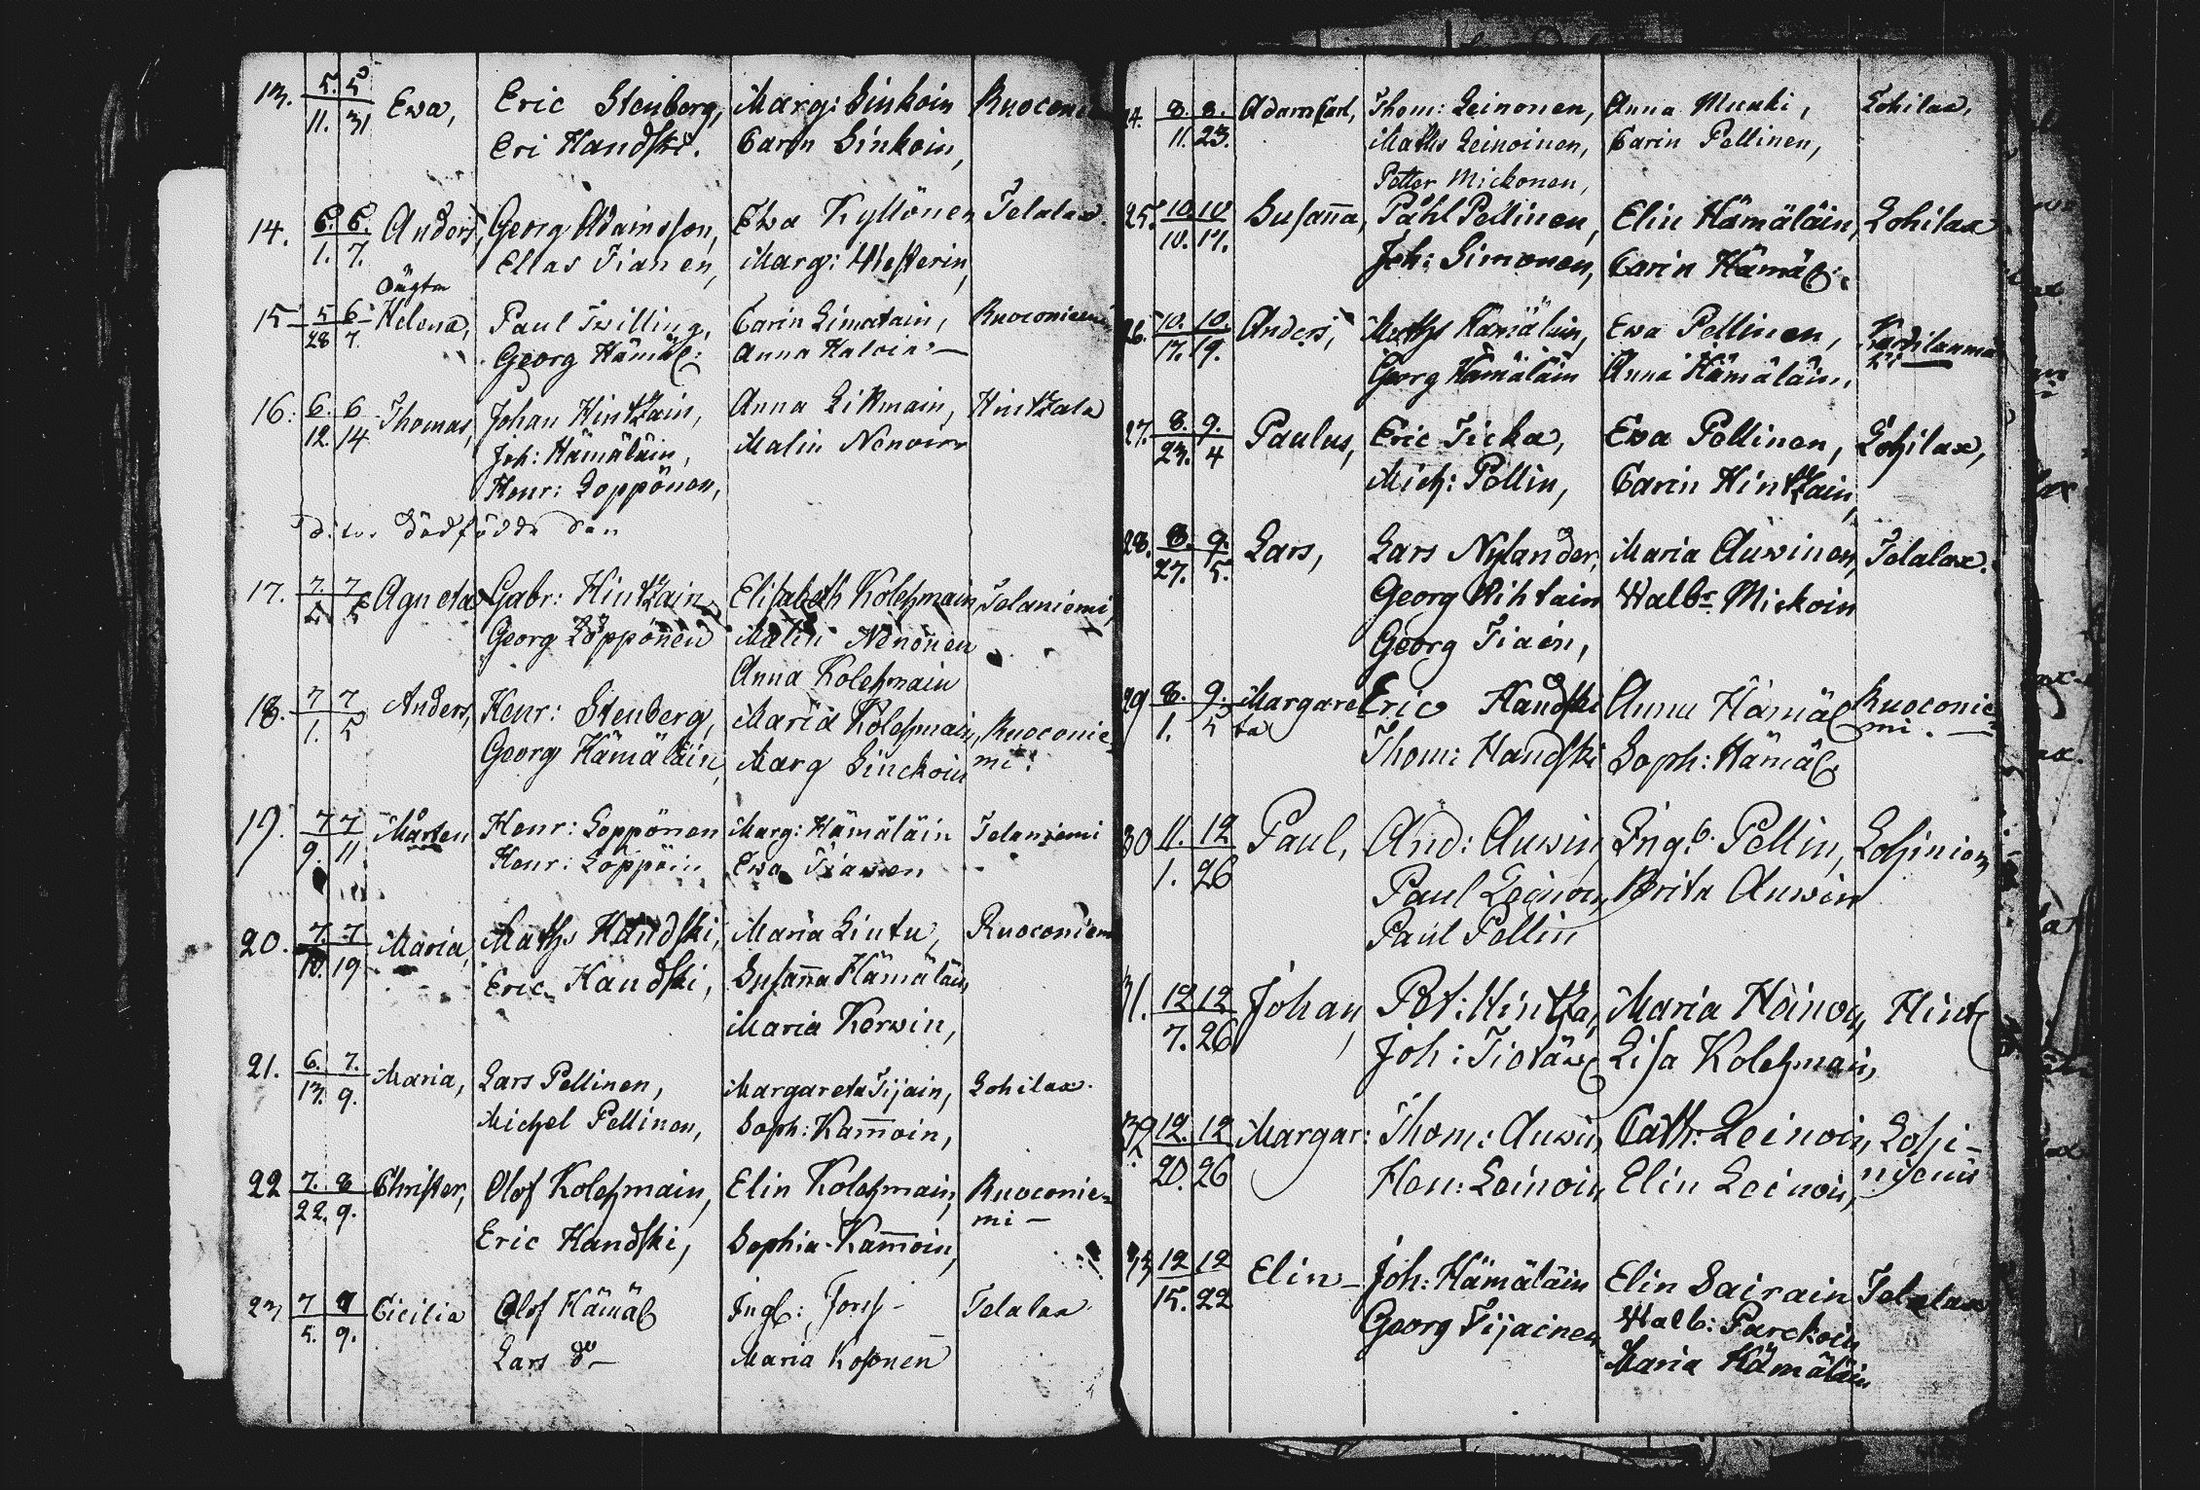 13. 5. 5 Ewa, Eric Stenborg, Marg: Sinkoin
11. 31 Eri Handski. Carin Sinkoin,
14. 6. 6. Anders, Georg Adamsson, Ewa Kyllönen Telalax.
1. 7. Elias Tianen, Marg: Westerin,
Oägta
15 5 6 Helena, Paul Twilling, Carin Limatain, Ruoconiemi
28 7. Georg Hämäl: Anna Haloin
16. 6. 6 Thomas, Johan Hintzain, Anna Likmain, Hintzala
12 14 Joh: Hämäläin, Malin Nenoin
Henr: Loppönen,
dödfödde den
17. 7. 7 Agneta Gabr: Hintzain Elisabeth Kolehmain Telaniemi,
5 5 Georg Loppönen Malin Nenonen
Anna Kolehmain
18. 7 7 Anders, Henr: Stenberg, Maria Kolehmain, Ruoconie-
1. 5 Georg Hämäläin, Marg Sinckoin mi:
19. 7 7 Mårten Henr: Loppönen Marg: Hämäläin Telaniemi
9. 11 Henr: Loppöin Ewa Tiainen
20. 7. 7 Maria, Maths Handski, Maria Lintu, Ruoconiem
10. 19 Eric Handski, Susanna Hämäläin,
Maria Kerwin,
21. 6. 7. Maria, Lars Pellinen, Margareta Tijain, Lohilax.
13. 9. Michel Pellinen, Soph: Kam̅oin,
22 7. 8 Christer, Olof Kolehmain, Elin Kolehmain, Ruoconie-
22. 9. Eric Handski, Sophia Kam̅oin, mi –
23 7 9 Cicilia Olof Hämäl Ingb: Telalax
5. 9. Lars do – Maria Kosonen
24. 8. 8. Adam Carl, Thom: Leinonen, Anna Munki, Lohilax,
11. 23. Maths Leinoinen, Carin Pellinen,
Petter Mickonen,
25. 10 10 Susan̅a, Påhl Pellinen, Elin Hämäläin, Lohilax
10. 17. Joh: Simonen, Carin Hämäl:
26. 10. 10 Anders, Maths Hämäläin, Ewa Pellinen,
17. 19. Georg Hämäläin Anna Hämäläin,
27. 8. 9. Paulus, Eric Ticka, Ewa Pellinen, Lohilax,
23. 4 Mich: Pellin, Carin Hintzain,
28. 8. 9. Lars, Lars Nylander, Maria Auwinen, Telalax.
27. 5. Georg Rihtain Walbr Mickoin
Georg Tiain,
29 8. 9. Margare Eric Handski Anna Hämäl Ruoconie-
1. 5 ta Thom: Handski Soph: Hämäl mi.
30 11. 12 Paul, And: Auwin, Ingb. Pellin, Lohiniem
1. 26 Paul Leinoin, Brita Auwin
Paul Pellin
31. 12 12 Johan, Pet: Hintza, Maria Hoinoin, Hintz
7. 26 Joh: Tiotäw Lisa Kolehmain,
32 12. 12 Margar: Thom: Auwin, Cath: Leinoin, Lohi-
20. 26 Hen: Leinoin, Elin Leinoin, niemi
33 12 12 Elin – Joh: Hämäläin Elin Sairain Telalax
15. 22 Georg Tijainen Walb: Parckoin
Maria Hämäläin